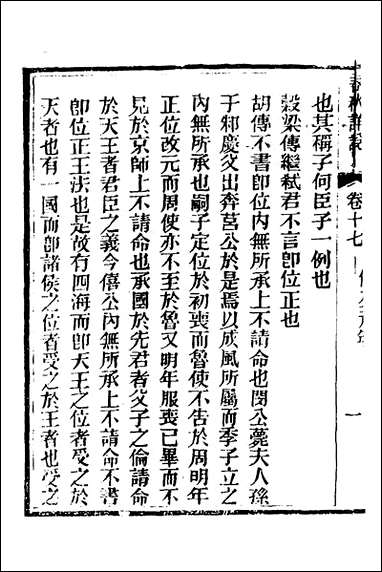 春秋詳說 卷十七 一
也其稱子何臣子一例也
穀梁傳繼弒君不言卽位正也
胡傳不書卽位內無所承上不請命也閔公薨夫人孫
于邾慶父出奔莒公於是焉以成風所屬而季子立之
內無所承也嗣子定位於初喪而魯使不告於周明年
正位改元而周使亦不至於魯又明年服喪已畢而不
見於京師上不請命也承國於先君者父子之倫請命
於天王者君臣之義今僖公內無所承上不請命不書
卽位正王法也是故有四海而卽天王之位者受之於
天者也有一國而卽諸侯之位者受之於王者也受之